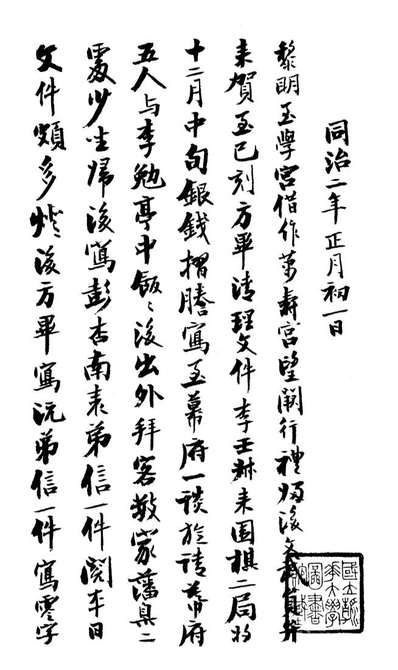 同治二年正月初一日
黎明至學宮借作萬壽宮望闕行禮歸後文武員弁
来賀至巳刻方畢清理文件李壬叔来圍棋二局将
十二月中旬銀錢摺謄寫至幕府一談旋請幕府
五人与李勉亭中飯〻後出外拜客數家藩臬二
處少坐歸後寫彭杏南表弟信一件閱本日
文件頗多燈後方畢寫沅弟信一件寫零字